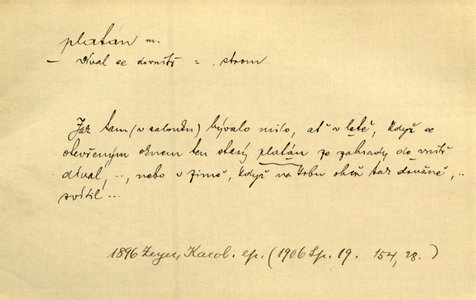 platan m.
– díval se dovnitř = . strom
Jak tam (v salonku) bývalo milo, ať v létě, když se
otevřeným oknem ten starý platán ze zahrady do vnitř
díval, .., nebo v zimě, když na krbu oheň tak důvěrně, ..
svítil ...
1896 Zeyer, Karol. ep. (1906 Sp. 19. 154, 28.)